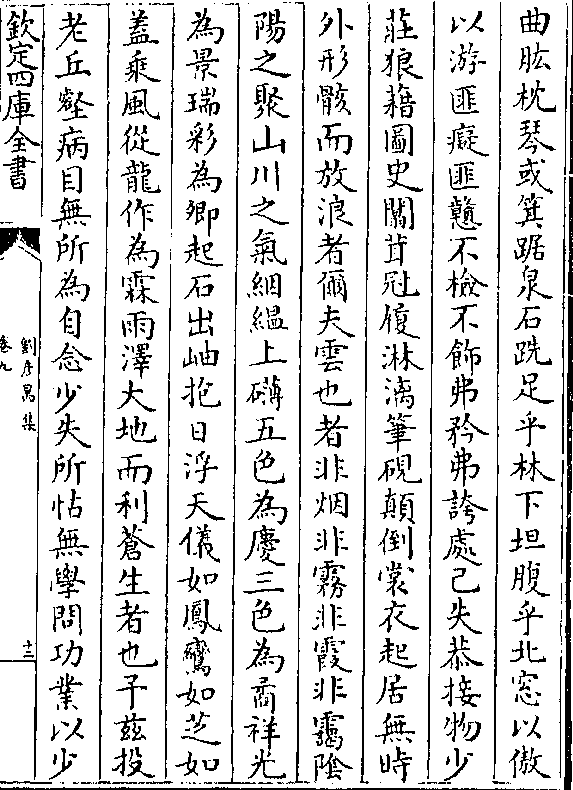 曲肱枕琴或箕踞泉石跣足乎林下坦腹乎北窓以傲
以游匪癡匪戇不檢不飾弗矜弗誇處己失恭接物少
莊狼藉圖史闒茸冠履淋漓筆硯顛倒裳衣起居無時
外形骸而放浪者儞夫雲也者非烟非霧非霞非靄陰
陽之聚山川之氣絪縕上礴五色為慶三色為矞祥光
為景瑞彩為卿起石出岫抱日浮天儀如鳳鸞如芝如
蓋乘風從龍作為霖雨澤大地而利蒼生者也予兹投
老丘壑病目無所為自念少失所怙無學問功業以少
欽定四庫全書
劉彥昺集
卷九
十二